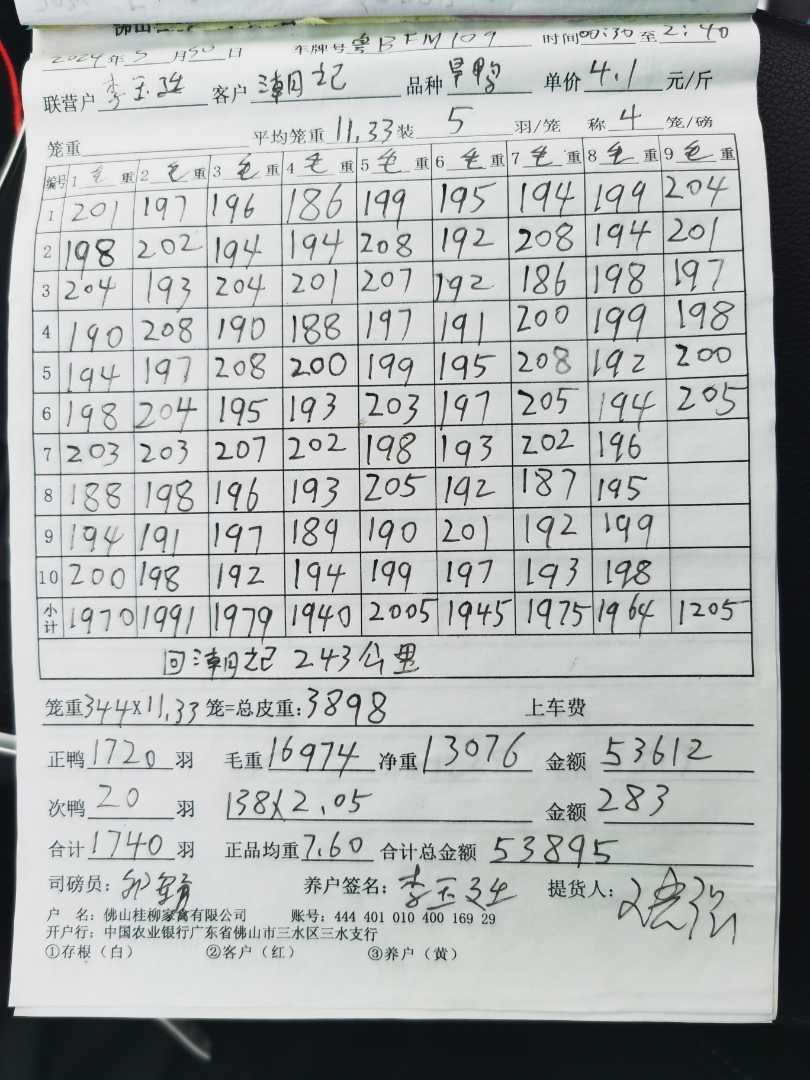 2024年5月30日 车牌号 粤BFM109 时间00:30至2:40
联营户 李玉珏 客户 潮记 品种 旱鸭 单价 4.1 元/斤
笼重 平均笼重 11.33 装 5 羽/笼 称 4 笼/磅
编号 1 毛 重 2 毛 重 3 毛 重 4 毛 重 5 毛 重 6 毛 重 7 毛 重 8 毛 重 9 毛 重
1 201 197 196 186 199 195 194 199 204
2 198 202 194 194 208 192 208 194 201
3 204 193 204 201 207 192 186 198 197
4 190 208 190 188 197 191 200 199 198
5 194 197 208 200 199 195 208 192 200
6 198 204 195 193 203 197 205 194 205
7 203 203 207 202 198 193 202 196
8 188 198 196 193 205 192 187 195
9 194 191 197 189 190 201 192 199
10 200 198 192 194 199 197 193 198
小计 1970 1991 1979 1940 2005 1945 1975 1964 1205
回潮记 243公里
笼重344×11.33笼=总皮重:3898 上车费
正鸭 1720 羽 毛重 16974 净重 13076 金额 53612
次鸭 20 羽 138×2.05 金额 283
合计 1740 羽 正品均重 7.60 合计总金额 53895
司磅员: 养户签名: 李玉珏 提货人:
户 名:佛山桂柳家禽有限公司 账号:444 401 010 400 169 29
开户行:中国农业银行广东省佛山市三水区三水支行
①存根(白) ②客户(红) ③养户(黄)